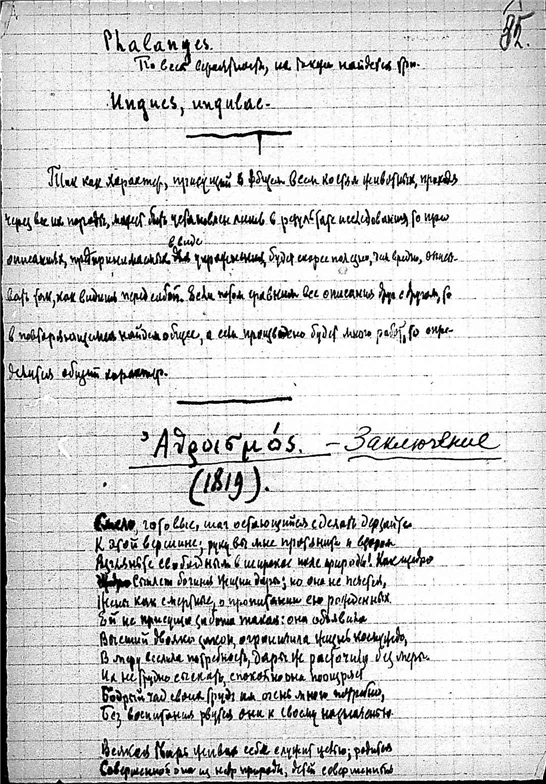 85.
Phalanges.
По всей вероятности, их также найдется три.
Ungues, ungulae.
Так как характер, присущий в общем всем костям животных, проходя
через все их породы, может быть установлен лишь в результате исследования, то при
описаниях, предпринимаемых в виде упражнения, будет скорее полезно, чем вредно, описы-
вать так, как видишь перед собой. Если потом сравним все описания друг с другом, то
в повторяющемся найдем общее, а если произведено будет много работ, то опре-
делится общий характер.
Ἀθροισμός. – Заключение
(1819).
Смело, готовые, шаг остающийся сделать дерзайте
К этой вершине; руку вы мне протяните и взором
Взгляните свободным в широкое поле природы! Как щедро
Сыплет богиня жизни дары; но она не печется,
Жены как смертные, о пропитании ею рожденных.
Ей не присуща забота такая: она объявила
Высший двояко закон, ограничила жизнь каждую,
В меру вселила потребность, дары ж расточила без меры.
Их не трудно сыскать, спокойно она поощряет
Бодрый чад своих труд на очень много потребно,
Без воспитания рвутся они к своему назначенью.
Всякая тварь живая себе служит целью; родится
Совершенной она из недр природы, детей совершенных